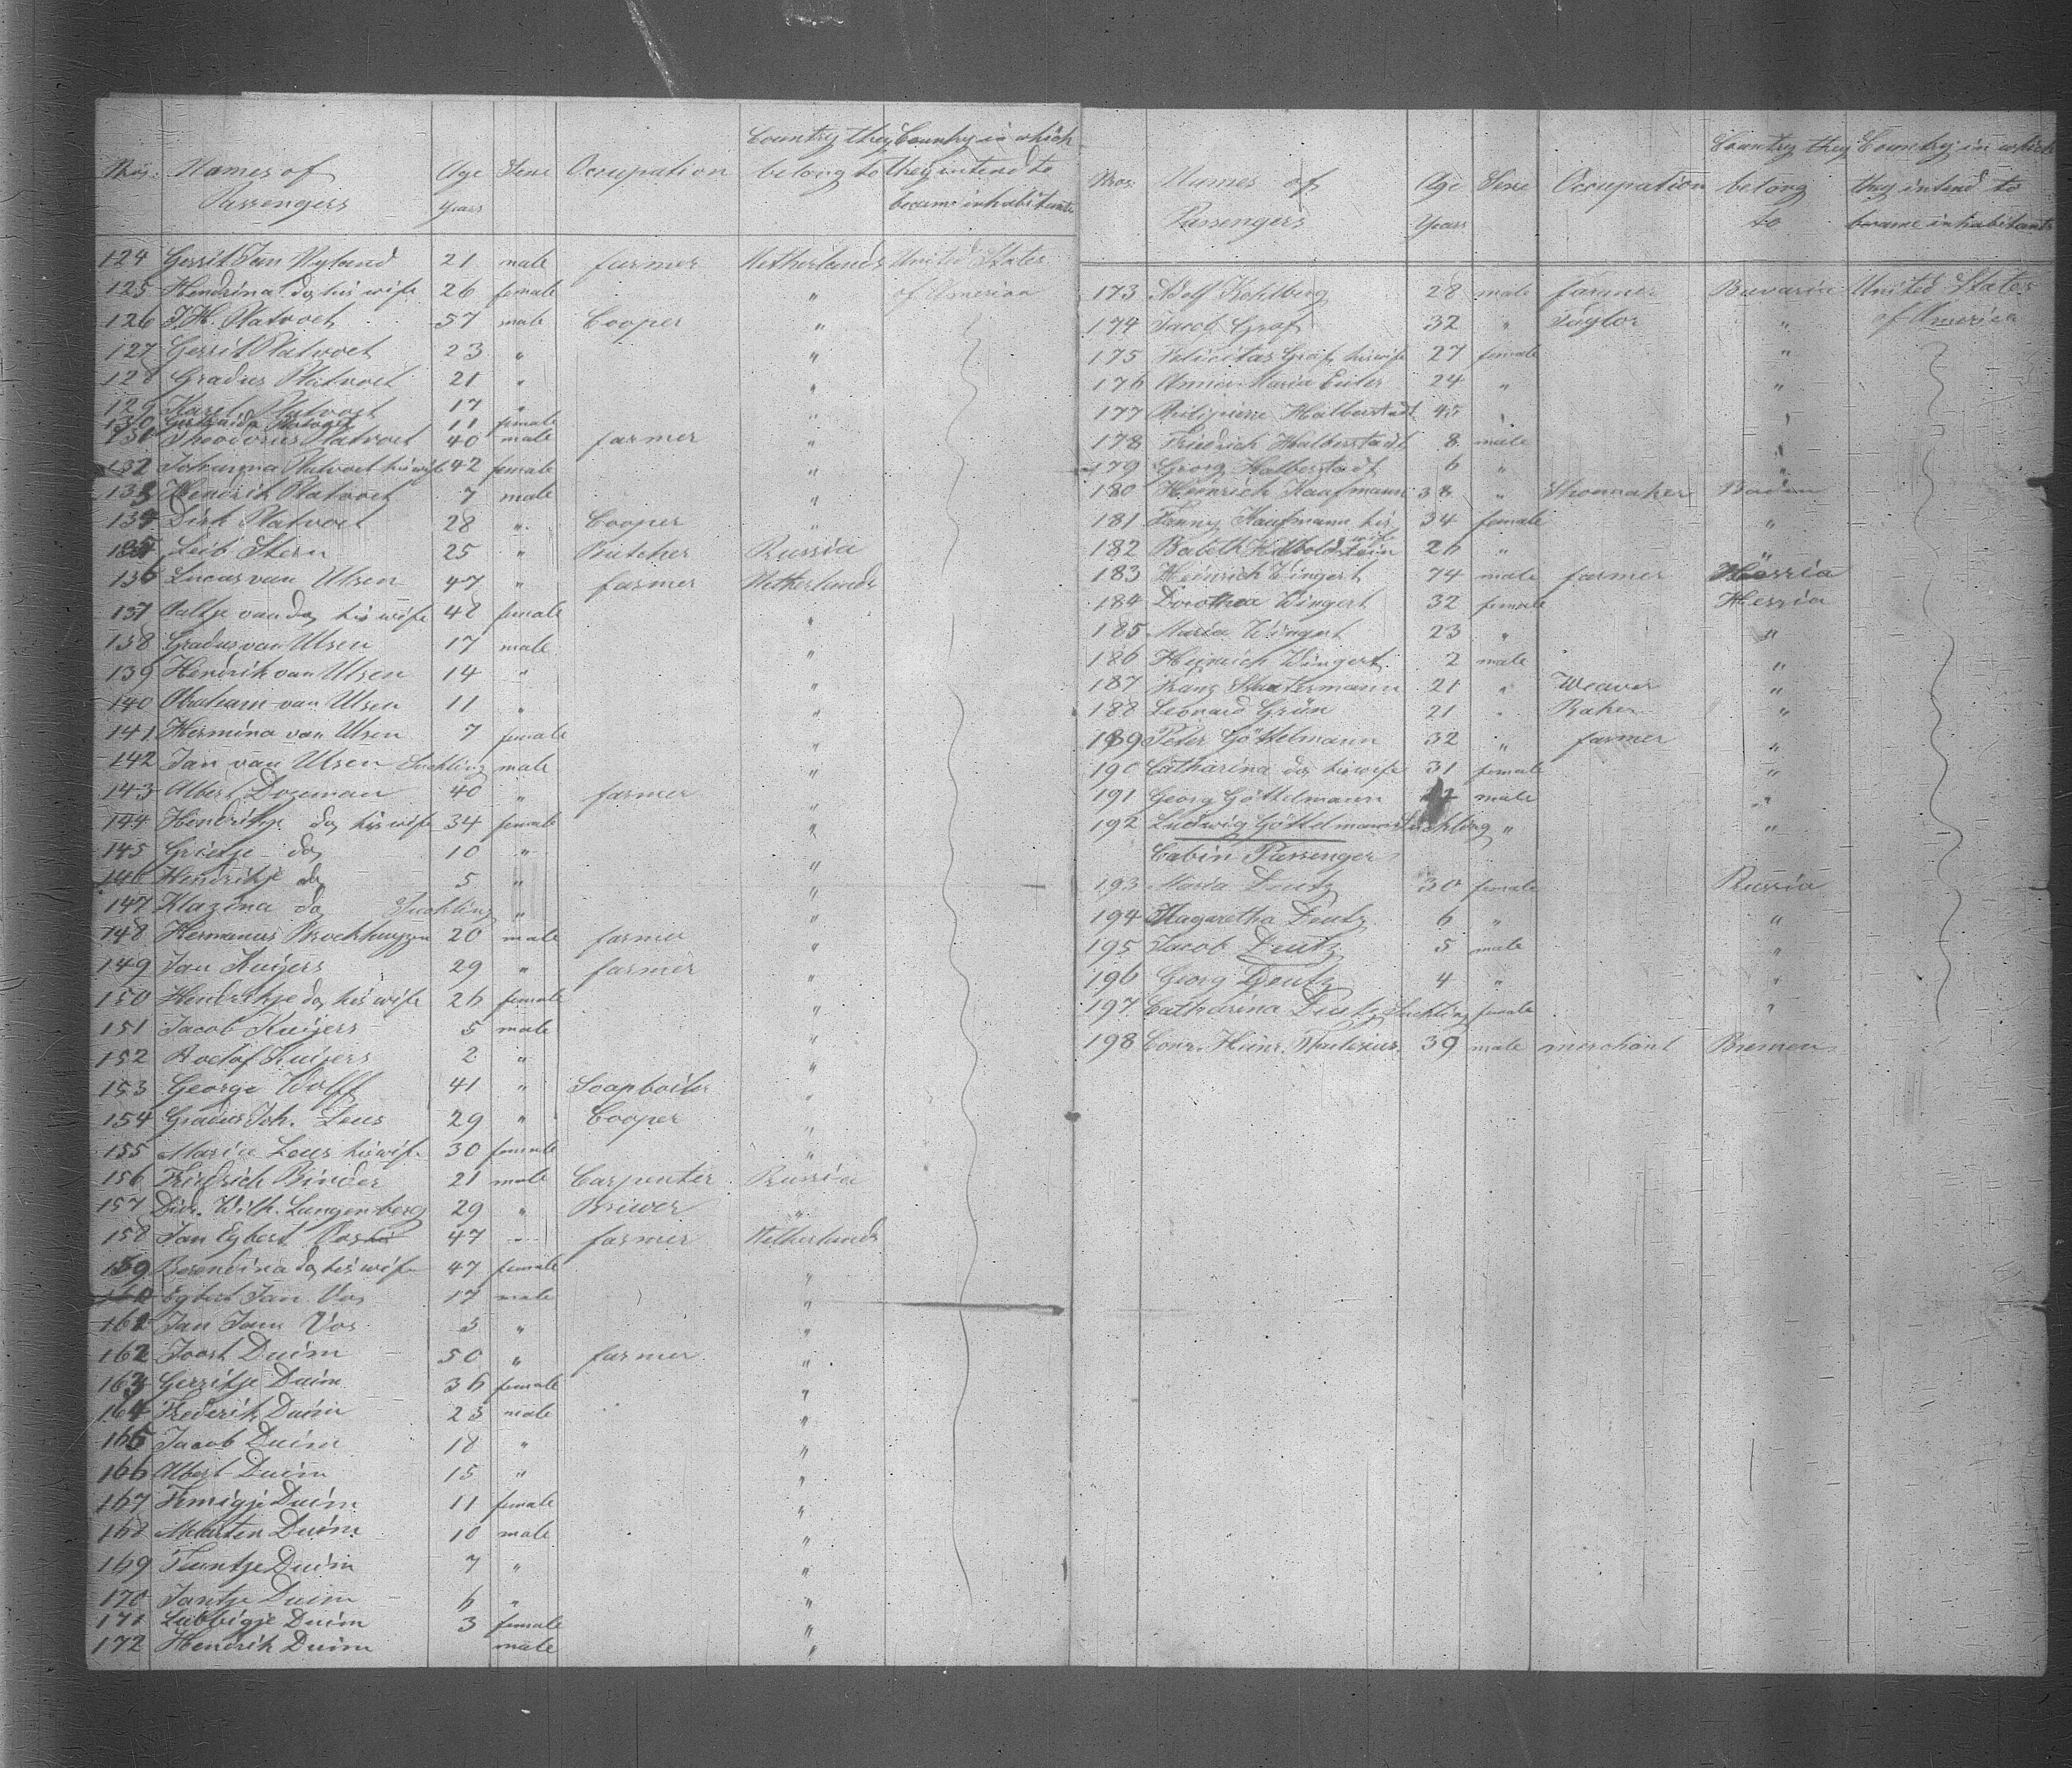 Nros. Names of Passengers Age Years Sexe Occupation Country they belong to Country in which they intend to become inhabitants
124 Gerrit Jan Nyland 21 male farmer Netherlands United States
125 Hendrina do his wife 26 female " of America
126 J.H. Platvoet 57 male Cooper "
127 Gerrit Platvoet 23 " "
128 Gradus Platvoet 21 " "
129 Karel Platvoet 17 " "
130 Platvoet 11 female
131 Theodorus Platvoet 40 male farmer "
132 Johanna Platvoet his wife 42 female "
133 Hendrik Platvoet 7 male "
134 Dirk Platvoet 28 " Cooper "
135 Leib Stern 25 " Butcher Russia
136 Lucas van Ulsen 47 " farmer Netherlands
137 Aaltje van do his wife 48 female "
138 Gradus van Ulsen 17 male "
139 Hendrik van Ulsen 14 " "
140 Abraham van Ulsen 11 " "
141 Hermina van Ulsen 7 female "
142 Jan van Ulsen Suckling male "
143 Albert Dozeman 40 " farmer "
144 Hendrikje do his wife 34 female "
145 Grietje do 10 " "
146 Hendrikje do 5 " "
147 Klazina do Suckling " "
148 Hermanus Broekhuyzen 20 male farmer "
149 Jan Kuijers 29 " farmer "
150 Hendrikje do his wife 26 female "
151 Jacob Kuijers 5 male "
152 Roelof Kuijers 2 " "
153 George Wolff 41 " Soapboiler "
154 Gradus Joh. Leus 29 " Cooper "
155 Maria Leus his wife 30 female "
156 Friedrich Binder 21 male Carpenter Russia
157 Died. Wilh. Langenberg 29 " Briewer "
158 Jan Egbert Vos 47 " farmer Netherlands
159 Berendina do his wife 47 female "
160 Egbert Jan Vos 17 male "
161 Jan Jans Vos 3 " "
162 Joost Duim 50 " farmer "
163 Gerritje Duim 36 female "
164 Frederik Duim 23 male "
165 Jacob Duim 18 " "
166 Albert Duim 15 " "
167 Femigje Duim 11 female "
168 Maarten Duim 10 male "
169 Teuntje Duim 7 " "
170 Jantje Duim 6 " "
171 Lubbigje Duim 3 female "
172 Hendrik Duim male "
Nros. Names of Passengers Age Years Sexe Occupation Country they belong to Country in which they intend to become inhabitants
173 Adolf Kohlberg 28 male farmer Bavaria United States
174 Jacob Graf 32 " Taylor " of America
175 Felicitas Graf his wife 27 female "
176 Anna Maria Euler 24 " "
177 Halberstadt 45 " "
178 Friedrich Halberstadt 8 male "
179 Georg Halberstadt 6 " "
180 Heinrich Kaufmann 38 " Shoemaker Baden
181 Fanny Kaufmann his wife 34 female "
182 Babeth 26 " "
183 Heinrich Wingert 74 male farmer Hessia
184 Dorothea Wingert 32 female Hessia
185 Maria Wingert 23 " "
186 Heinrich Wingert 2 male "
187 Franz 21 " Weaver "
188 Leonard Grün 21 " Baker "
189 Peter Göttelmann 32 " farmer "
190 Catharina do his wife 31 female "
191 Georg Göttelmann male "
192 Ludwig Göttelmann Suckling " "
Cabin Passenger
193 Maria Deutz 30 female Russia
194 Magaretha Deutz 6 " "
195 Jacob Deutz 5 male "
196 Georg Deutz 4 " "
197 Catharina Deutz Suckling female "
198 Conr. Heinr. 39 male merchant Bremen